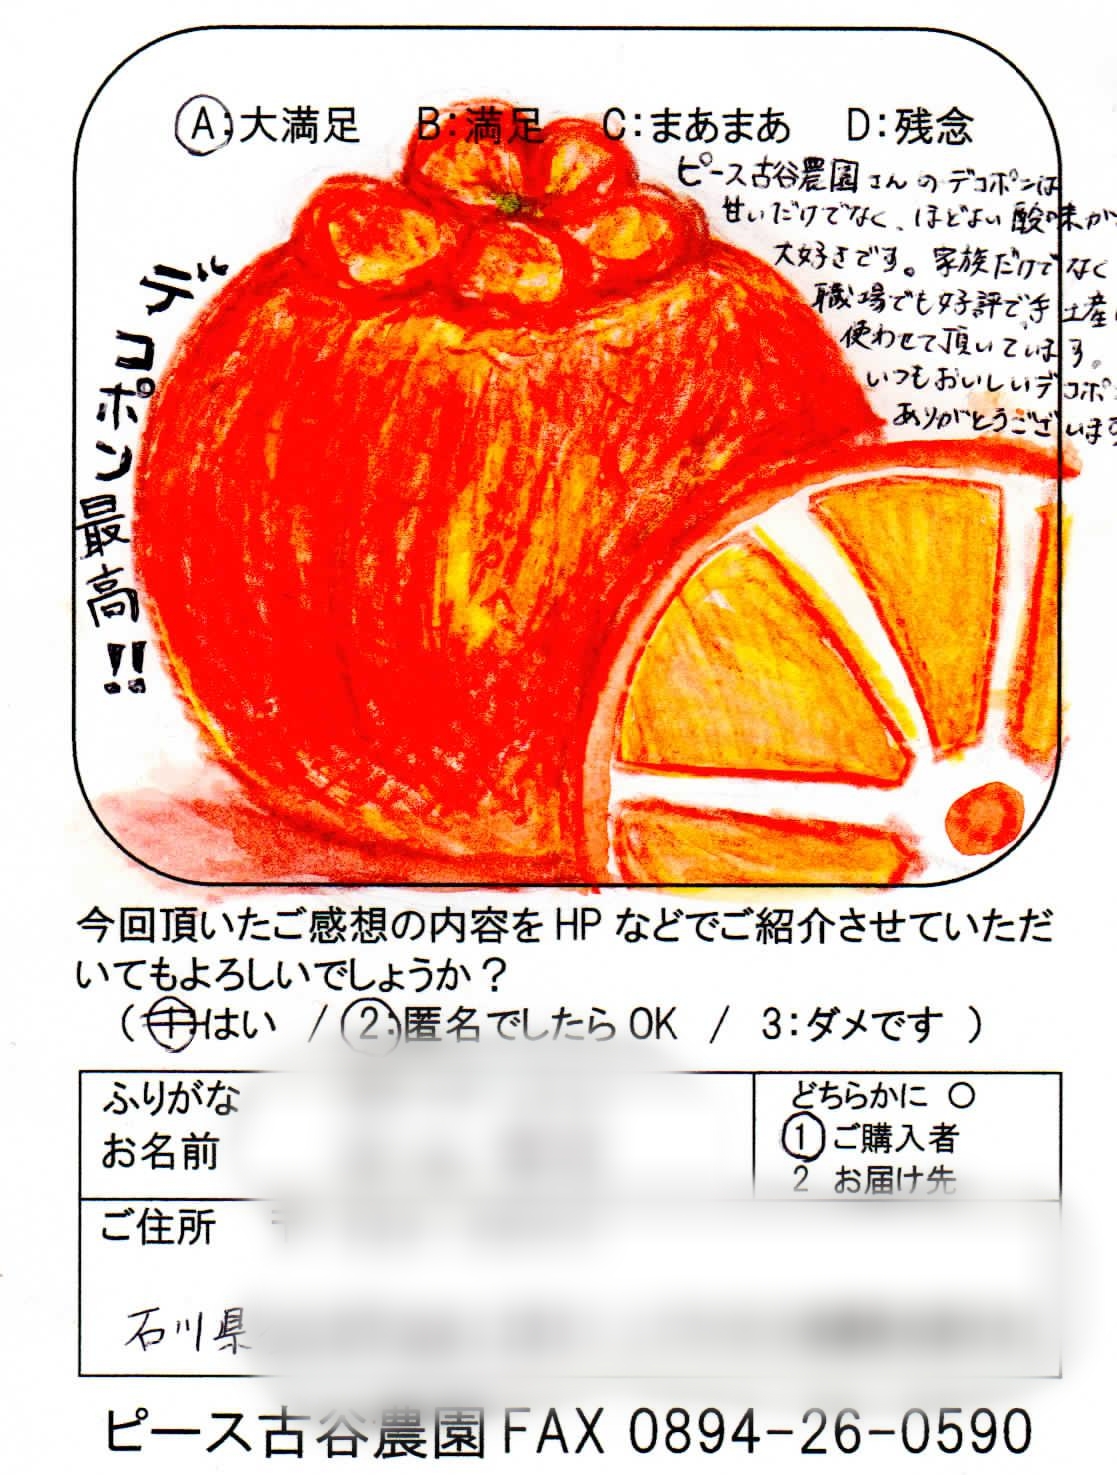 A:大満足 B:満足 C:まあまあ D:残念
ピース古谷農園さんのデコポンは
甘いだけでなく、ほどよい酸味が
大好きです。家族だけでなく
職場でも好評で手土産に
使わせて頂いています。
いつもおいしいデコポン
ありがとうございます
デコポン最高!!
今回頂いたご感想の内容をHPなどでご紹介させていただ
いてもよろしいでしょうか？
(1:はい / 2:匿名でしたらOK / 3:ダメです )
ふりがな
お名前
どちらかに ○
1 ご購入者
2 お届け先
ご住所 〒
石川県
ピース古谷農園 FAX 0894-26-0590